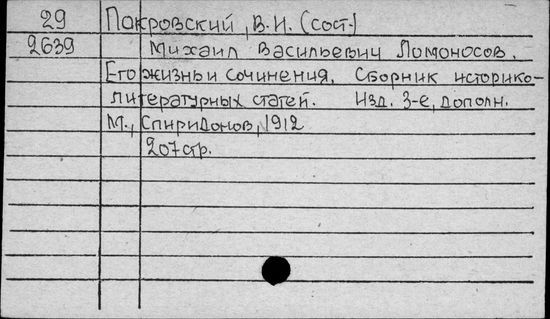 29 Покровский, В.И. (сост.)
2639 Михаил Васильевич Ломоносов.
Его жизнь и сочинения. Сборник историко-
литературных статей. Изд. 3-е, дополн.
М., Спиридонов, 1912
207 стр.